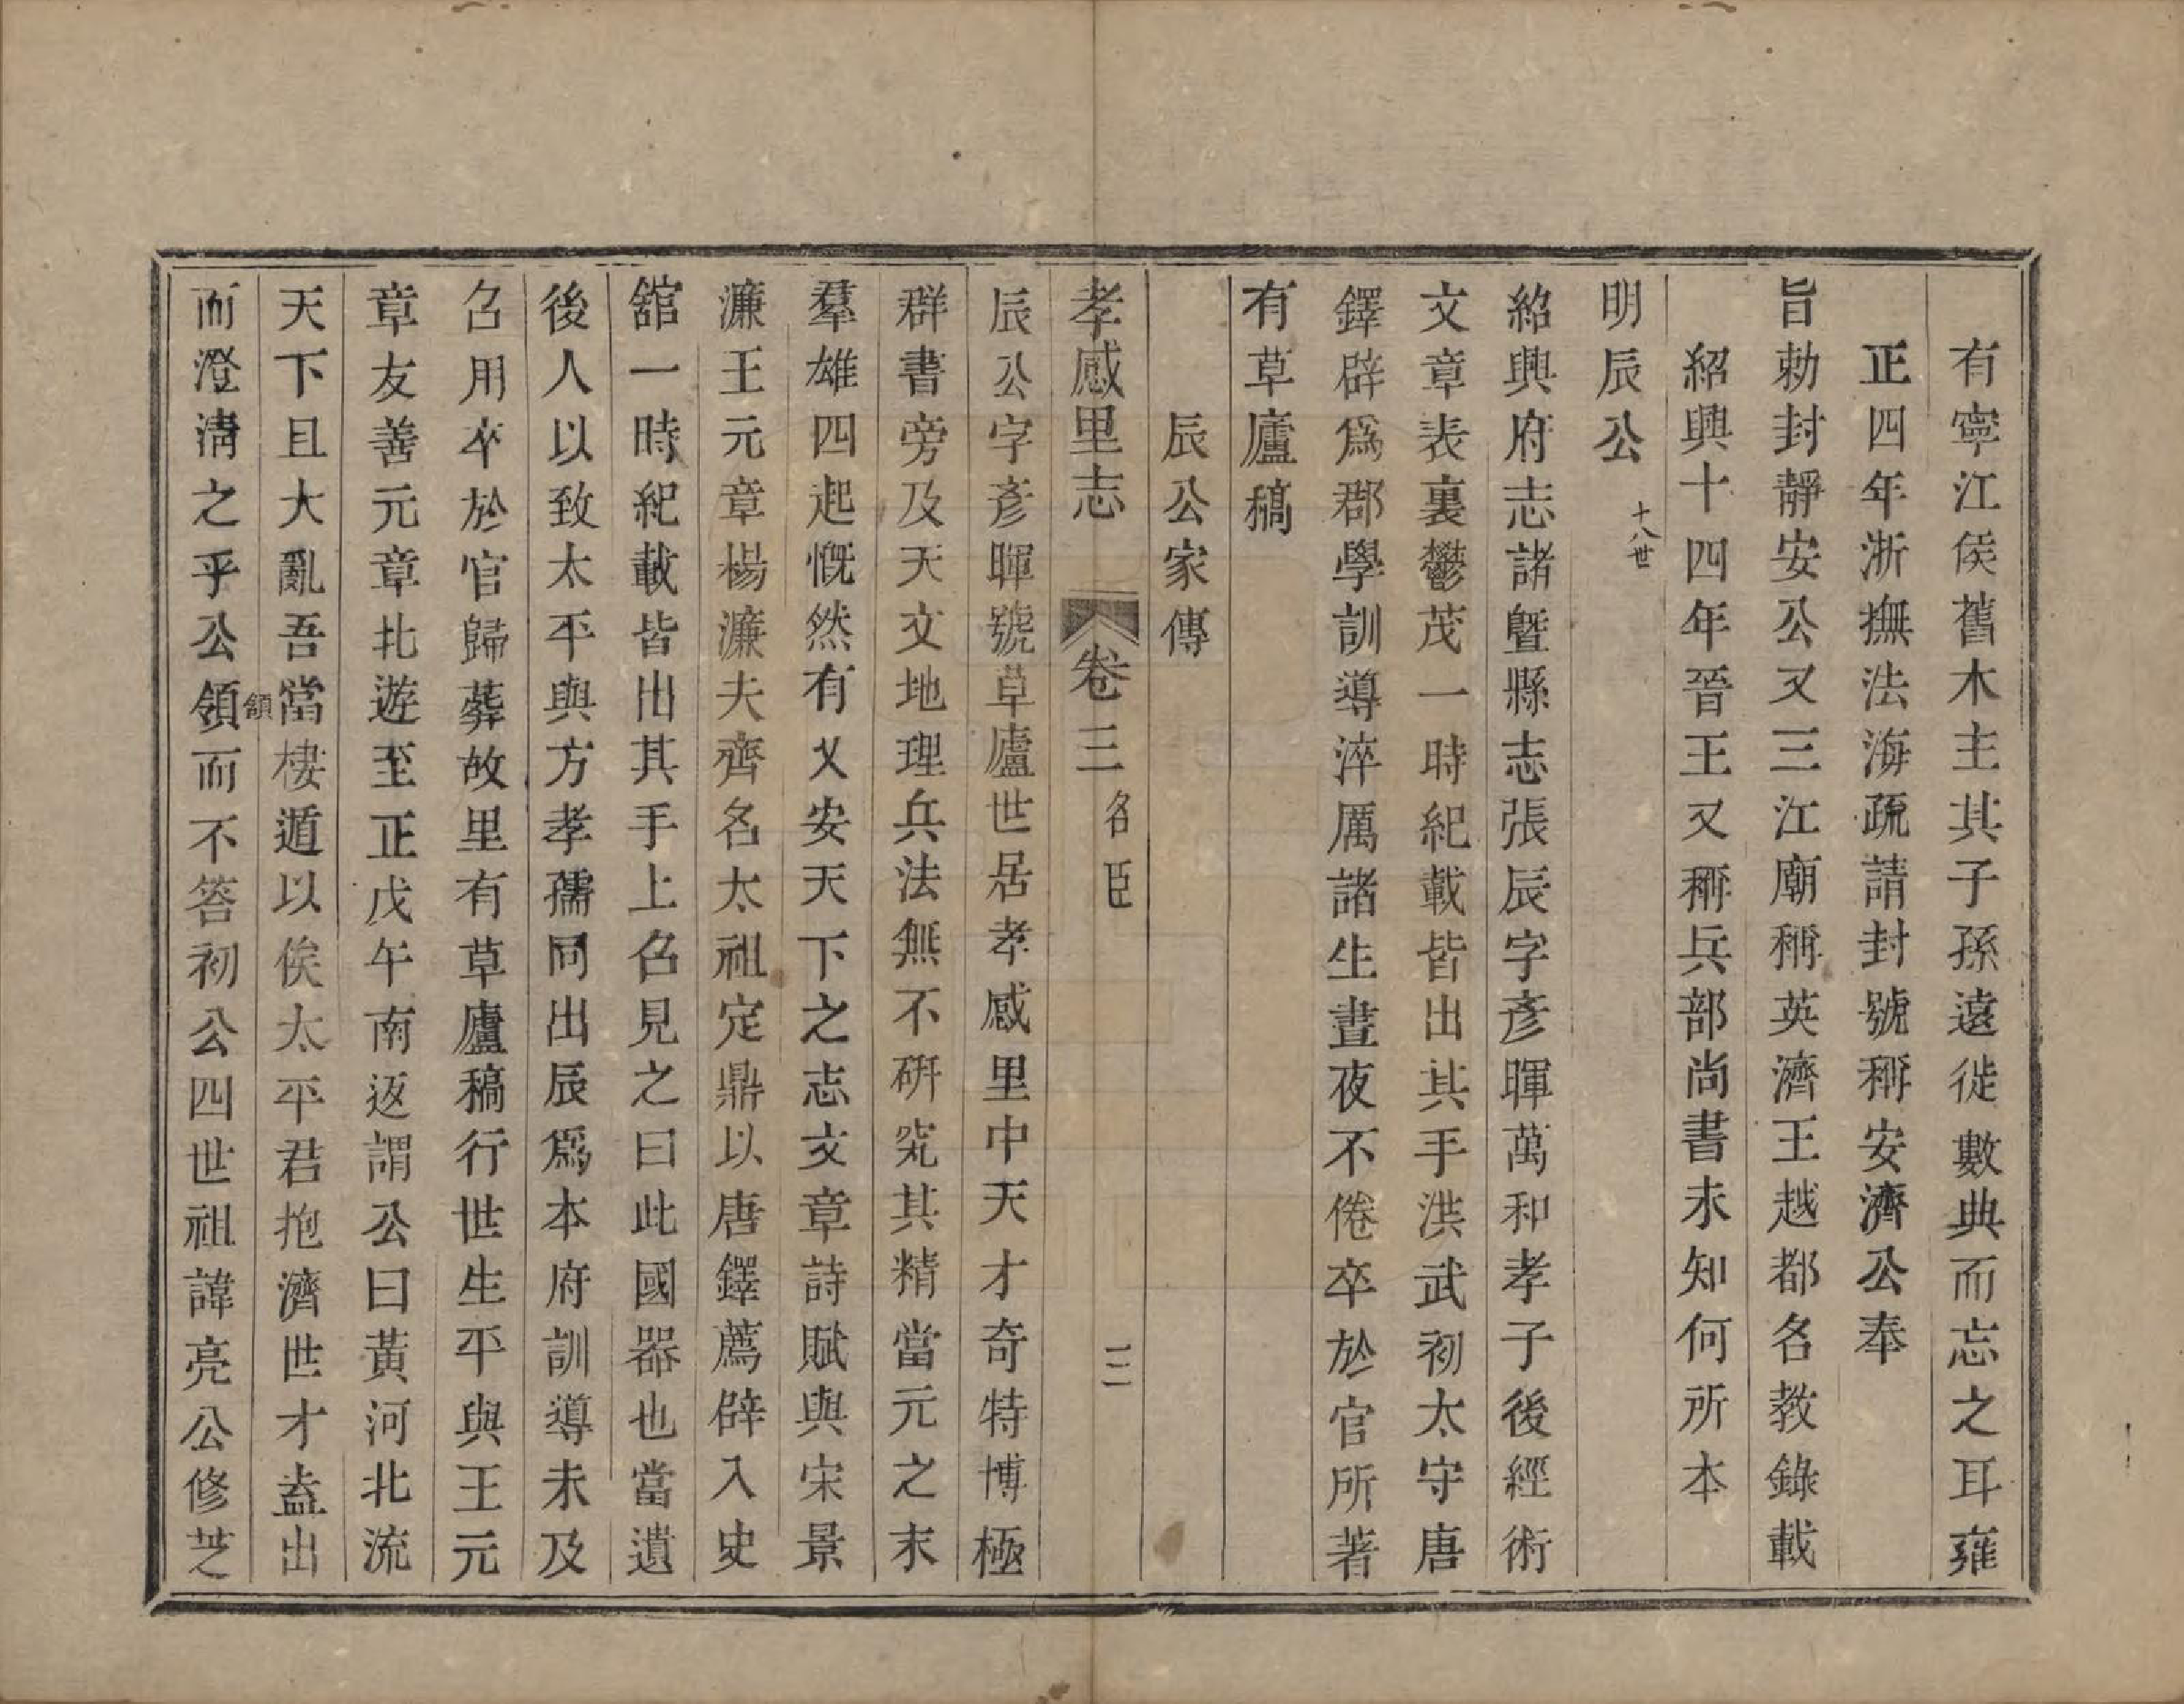 有寧江侯舊木主其子孫遠徙數典而忘之耳雍
正四年浙撫法海疏請封號稱安濟公奉
旨勅封靜安公又三江廟稱英濟王越都名教錄載
紹興十四年晉王又稱兵部尚書未知何所本
明辰公十八世
紹興府志諸曁縣志張辰字彥暉萬和孝子後經術
文章表裏鬱茂一時紀載皆出其手洪武初太守唐
鐸辟爲郡學訓導淬厲諸生晝夜不倦卒於官所著
有草廬稿
辰公家傳
孝感里志 卷三名臣 三
辰公字彥暉號草廬世居孝感里中天才奇特博極
群書旁及天文地理兵法無不硏究其精當元之末
羣雄四起慨然有乂安天下之志文章詩賦與宋景
濂王元章楊濂夫齊名太祖定鼎以唐鐸薦辟入史
舘一時紀載皆出其手上召見之曰此國器也當遺
後人以致太平與方孝孺同出辰爲本府訓導未及
召用卒於官歸葬故里有草廬稿行世生平與王元
章友善元章北遊至正戊午南返謂公曰黃河北流
天下且大亂吾當棲遁以俟太平君抱濟世才盍出
而澄淸之乎公領頷而不答初公四世祖諱亮公修芝